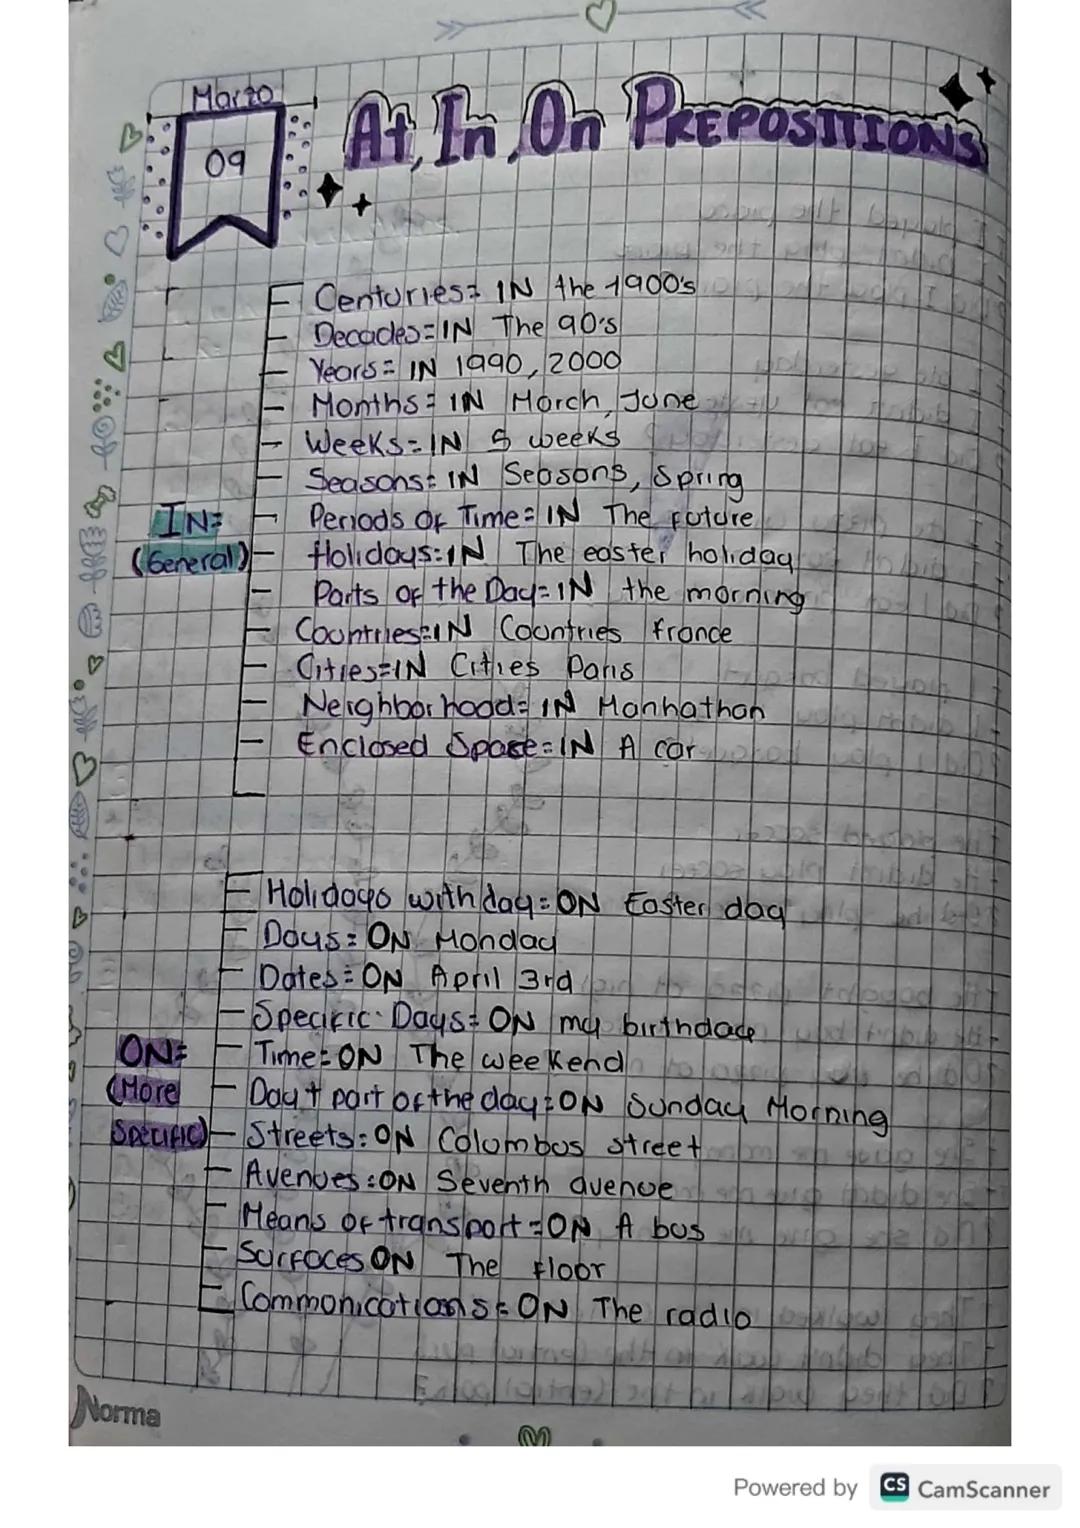 Marzo
09
At, In, On PREPOSITIONS
Centuries= IN the 1900's
Decades=IN The 90's
Years= IN 1990, 2000
Months= IN March, June
Weeks=IN 5 weeks
Seasons= IN Seasons, Spring
IN=
Periods Of Time= IN The future
(General)
Holidays=IN The easter holiday
Parts of the Day=IN the morning
Countries=IN Countries france
Cities=IN Cities Paris
Neighborhood= IN Manhathan
Enclosed Space=IN A car
Holidays with day=ON Easter day
Days= ON Monday
Dates= ON April 3rd
Specific Days= ON my birthdaye
ON=
Time= ON The weekend
(More
Day + part of the day=ON Sunday Morning
Specific)
Streets= ON Columbus street
Avenues=ON Seventh avenue
Means of transport=ON A bus
Surfaces ON The floor
Communications= ON The radio
Norma
Powered by CS CamScanner